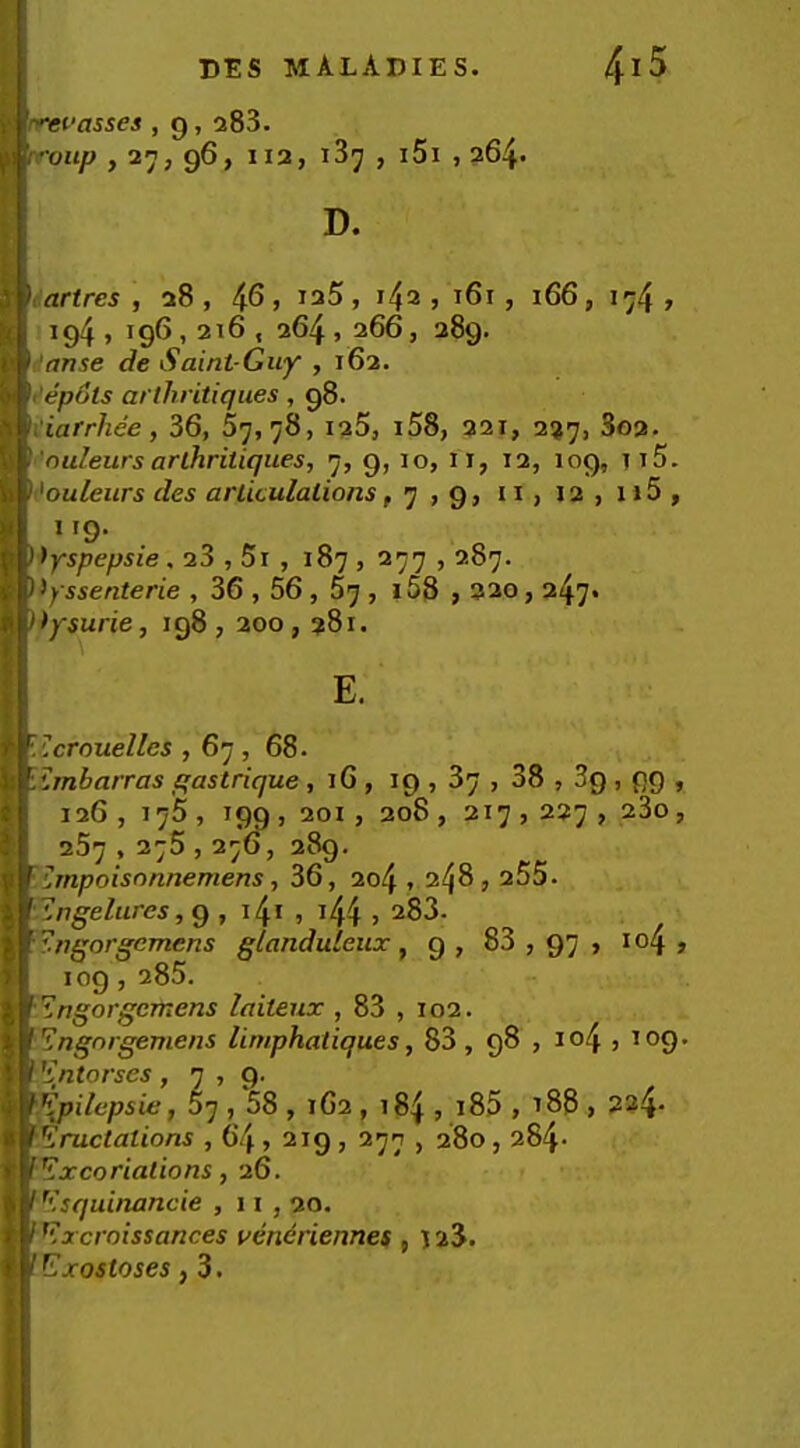 DES MALADIES. 415
revasses , 9, 283.
roup , 27, 96, 112, 137 , 151 , 264.
D.
artres , 28 , 46, 125, 142 , 161 , 166, 174 ,
194, 196 , 216 , 264, 266, 289.
anse de Saint-Guy , 162.
épôts arthritiques , 98.
iarrhée, 36, 57, 78, 125, 158, 221, 227, 302.
ouleurs arthritiques, 7, 9, 10, 11, 12, 109, 115.
ouleurs des articulations, 7 , 9, 11 , 12 , 115 ,
119.
yspepsie , 23 , 51 , 187 , 277 , 287.
yssenterie , 36 , 56 , 57 , 158 , 220, 247.
ysurie, 198 , 200 , 281.
E.
crouelles , 67 , 68.
mbarras gastrique , 16 , 19 , 37 , 38 , 39 , 99 ,
126 , 175 , 199 , 201 , 208 , 217 , 227 , 230,
257 , 275 , 276, 289.
mpoisonnemens , 36, 204 , 248 , 255.
ngelures, 9 , 141 , 144 , 283.
ngorgemens glanduleux , 9 , 83 , 97 , 104 ,
109 , 285.
ngorgemens laiteux , 83 , 102.
ngorgemens limphatiques, 83 , 98 , 104 , 109.
Entorses , 7 , 9.
Epilepsie, 57 , 58 , 162 , 184 , 185 , 188 , 224.
Eructations , 64 , 219 , 277 , 280, 284.
Excoriations , 26.
Esquinancie , 11 , 20.
Excroissances vénériennes , 123.
Exostoses , 3.